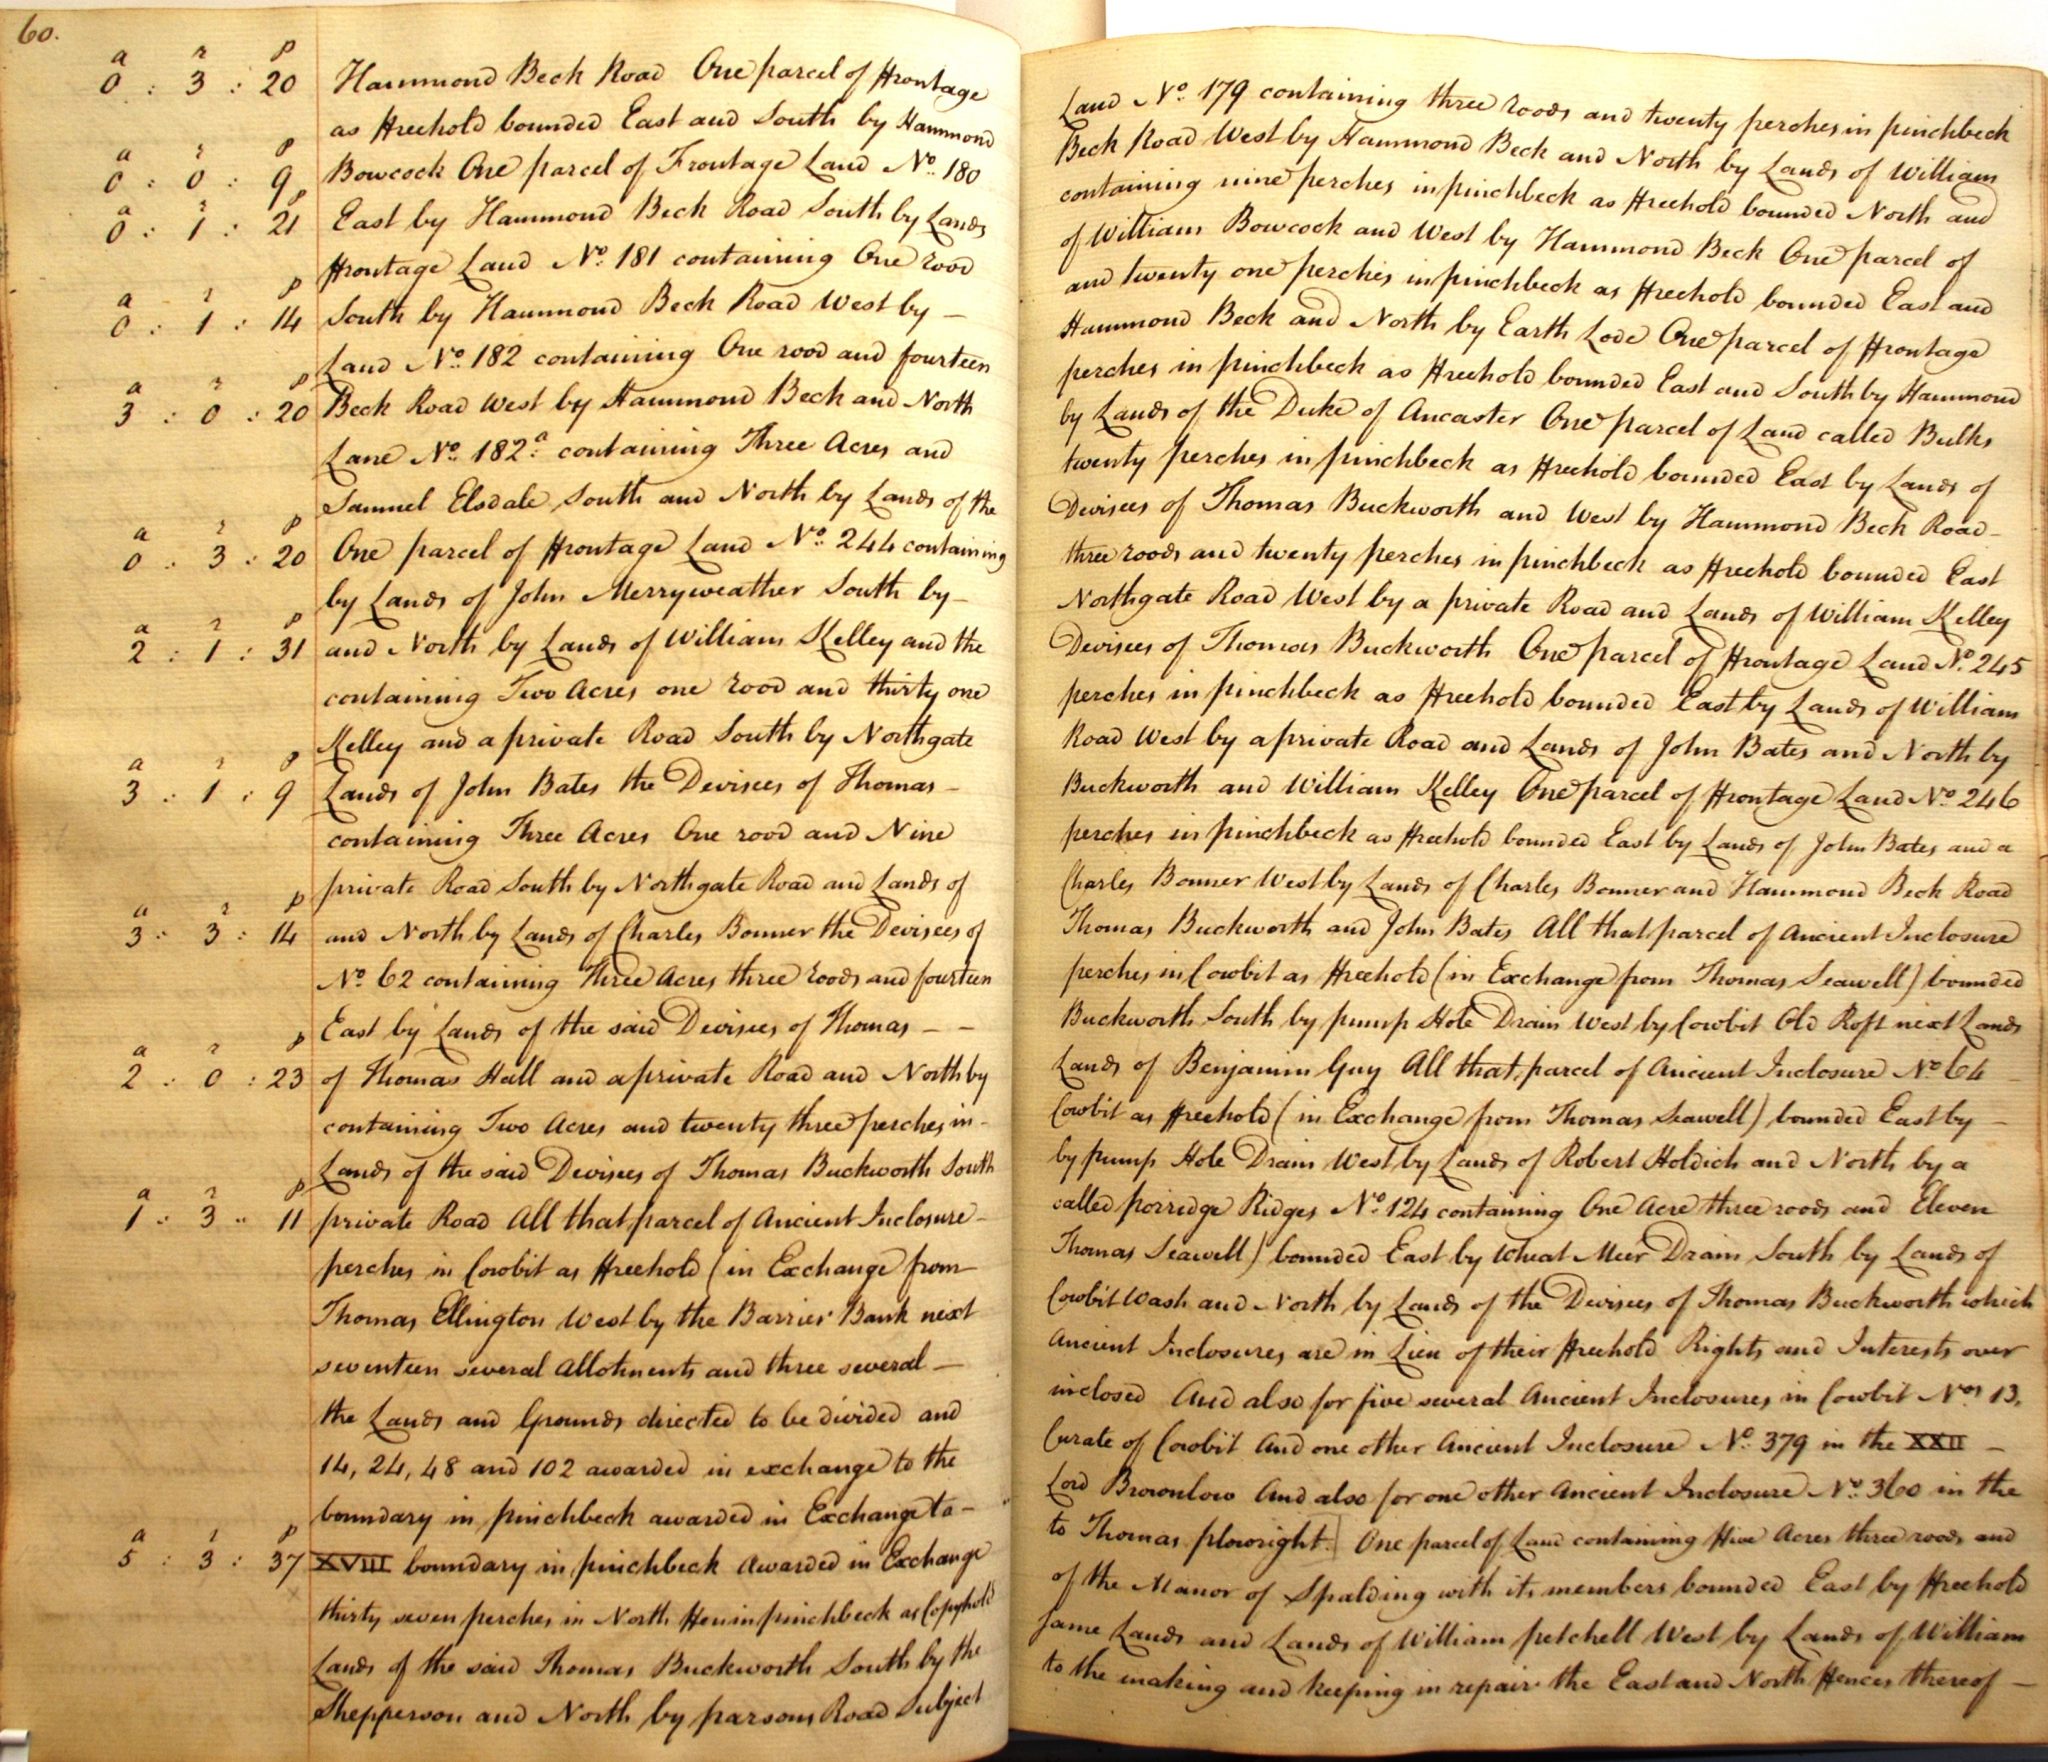 60.
a r p
0 : 3 : 20 Hammond Beck Road One parcel of Frontage Land No. 179 containing three roods and twenty perches in pinchbeck
as Freehold bounded East and South by Hammond Beck Road West by Hammond Beck and North by Lands of William
a r p
0 : 0 : 9 Bowcock One parcel of Frontage Land No. 180 containing nine perches in pinchbeck as Freehold bounded North and
a r p
0 : 1 : 21 East by Hammond Beck Road South by Lands of William Bowcock and West by Hammond Beck One parcel of
Frontage Land No. 181 containing One rood and twenty one perches in pinchbeck as Freehold bounded East and
a r p
0 : 1 : 14 South by Hammond Beck Road West by – Hammond Beck and North by Earth Lode One parcel of Frontage
Land No. 182 containing One rood and fourteen perches in pinchbeck as Freehold bounded East and South by Hammond
a r p
3 : 0 : 20 Beck Road West by Hammond Beck and North by Lands of the Duke of Ancaster One parcel of Land called Bulks
Lane No. 182.a containing Three Acres and twenty perches in pinchbeck as Freehold bounded East by Lands of
Samuel Elsdale South and North by Lands of the Devisees of Thomas Buckworth and West by Hammond Beck Road –
a r p
0 : 3 : 20 One parcel of Frontage Land No. 244 containing three roods and twenty perches in pinchbeck as Freehold bounded East
by Lands of John Merryweather South by – Northgate Road West by a private Road and Lands of William Kelley
a r p
2 : 1 : 31 and North by Lands of William Kelley and the Devisees of Thomas Buckworth One parcel of Frontage Land No. 245
containing Two Acres one rood and thirty one perches in pinchbeck as Freehold bounded East by Lands of William
Kelley and a private Road South by Northgate Road West by a private Road and Lands of John Bates and North by
a r p
3 : 1 : 9 Lands of John Bates the Devisees of Thomas – Buckworth and William Kelley One parcel of Frontage Land No. 246
containing Three Acres One rood and Nine perches in pinchbeck as Freehold bounded East by Lands of John Bates and a
private Road South by Northgate Road and Lands of Charles Bonner West by Lands of Charles Bonner and Hammond Beck Road
a r p
3 : 3 : 14 and North by Lands of Charles Bonner the Devisees of Thomas Buckworth and John Bates All that parcel of Ancient Inclosure
No. 62 containing Three Acres three roods and fourteen perches in Cowbit as Freehold (in Exchange from Thomas Seawell) bounded
East by Lands of the said Devisees of Thomas – – Buckworth South by pump Hole Drain West by Cowbit Old Roft next Lands
a r p
2 : 0 : 23 of Thomas Hall and a private Road and North by Lands of Benjamin Guy All that parcel of Ancient Inclosure No. 64 –
containing Two Acres and twenty three perches in – Cowbit as Freehold (in Exchange from Thomas Seawell) bounded East by –
Lands of the said Devisees of Thomas Buckworth South by pump Hole Drain West by Lands of Robert Holdich and North by a
a r p
1 : 3 : 11 private Road All that parcel of Ancient Inclosure – called porridge Ridges No. 124 containing One Acre three roods and Eleven
perches in Cowbit as Freehold (in Exchange from Thomas Seawell) bounded East by Wheat Meer Drain South by Lands of
Thomas Ellington West by the Barrier Bank next Cowbit Wash and North by Lands of the Devisees of Thomas Buckworth which
seventeen several Allotments and three several – Ancient Inclosures are in Lieu of their Freehold Rights and Interests over
the Lands and Grounds directed to be divided and inclosed And also for five several Ancient Inclosures in Cowbit Nos. 13,
14, 24, 48 and 102 awarded in exchange to the Curate of Cowbit And one other Ancient Inclosure No. 379 in the XXII –
boundary in pinchbeck awarded in Exchange to – Lord Brownlow And also for one other Ancient Inclosure No. 360 in the
a r p
5 : 3 : 37 XVIII boundary in pinchbeck awarded in Exchange to Thomas plowright. One parcel of Land containing Five Acres three roods and
thirty seven perches in North Fen in pinchbeck as Copyhold of the Manor of Spalding with its members bounded East by Freehold
Lands of the said Thomas Buckworth South by the same Lands and Lands of William petchell West by Lands of William
Shepperson and North by parsons Road Subject to the making and keeping in repair the East and North Fences thereof –